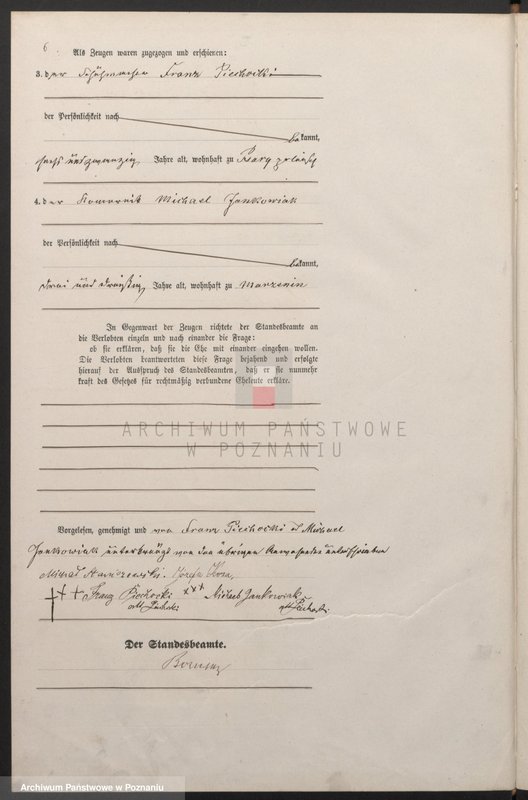 6
Als Zeugen waren zugezogen und erschienen:
3. der Franz Piechocki
der Persönlichkeit nach
bekannt,
sechs und zwanzig Jahre alt, wohnhaft zu
4. der Komornik Michael Jankowiak
der Persönlichkeit nach
bekannt,
drei und dreißig Jahre alt, wohnhaft zu Marzenin
In Gegenwart der Zeugen richtete der Standesbeamte an
die Verlobten einzeln und nach einander die Frage:
ob sie erklären, daß sie die Ehe mit einander eingehen wollen.
Die Verlobten beantworteten diese Frage bejahend und erfolgte
hierauf der Ausspruch des Standesbeamten, daß er sie nunmehr
kraft des Gesetzes für rechtmäßig verbundene Eheleute erkläre.
ARCHIWUM PAŃSTWOWE
W POZNANIU
Vorgelesen, genehmigt und von Franz Piechocki et Michael
Jankowiak unterkreuzt von den übrigen unterschrieben
Michał
+++ Franz Piechocki +++ Michael Jankowiak
Der Standesbeamte.
Archiwum Państwowe w Poznaniu